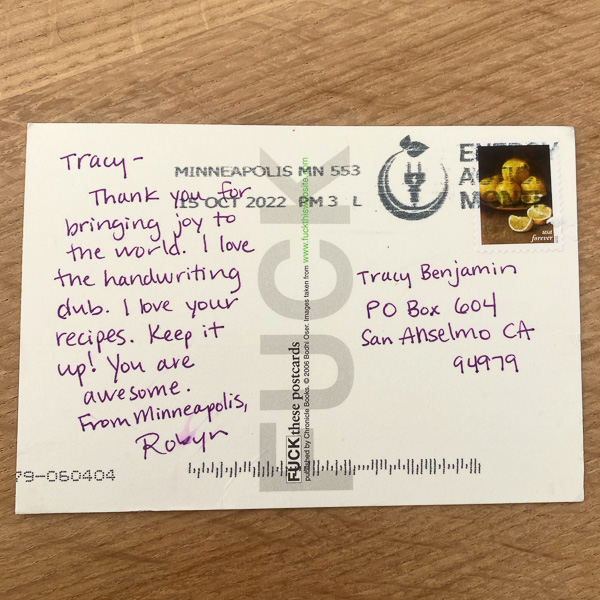 Tracy-
Thank you for
bringing joy to
the world. I love
the handwriting
club. I love your
recipes. Keep it
up! You are
awesome.
From Minneapolis,
Robyn
MINNEAPOLIS MN 553
15 OCT 2022 PM 3 L
ENERGY
usa
forever
Tracy Benjamin
PO Box 604
San Anselmo CA
94979
FUCK
FUCK these postcards
published by Chronicle Books. © 2006 Bodhi Oser. Images taken from www.fuckthiswebsite.com
79-060404